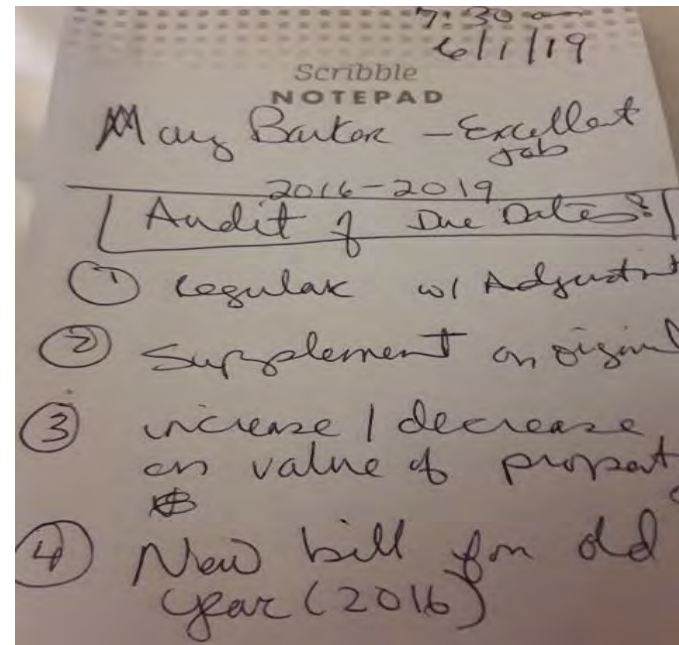 7:30 am
6/1/19
Scribble
NOTEPAD
Mary Barker - Excellent
Job
2016-2019
Audit of Due Dates:
① regular w/ Adjustmt
② Supplement on original
③ increase / decrease
on value of propert
④ New bill for old
year (2016)